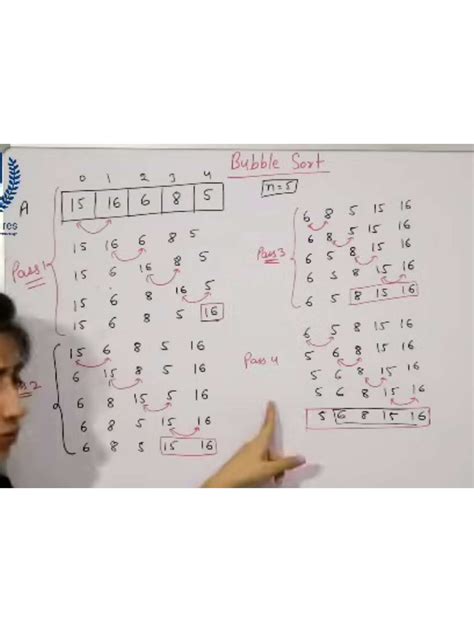 Bubble Sort
0 1 2 3 4
n=5
A 15 16 6 8 5
Pass 1
15 16 6 8 5
15 6 16 8 5
15 6 8 16 5
15 6 8 5 16
2
15 6 8 5 16
6 15 8 5 16
6 8 15 5 16
6 8 5 15 16
6 8 5 15 16
Pass 3
6 8 5 15 16
6 8 5 15 16
6 5 8 15 16
6 5 8 15 16
6 5 8 15 16
Pass 4
6 5 8 15 16
5 6 8 15 16
5 6 8 15 16
5 6 8 15 16
5 6 8 15 16
res